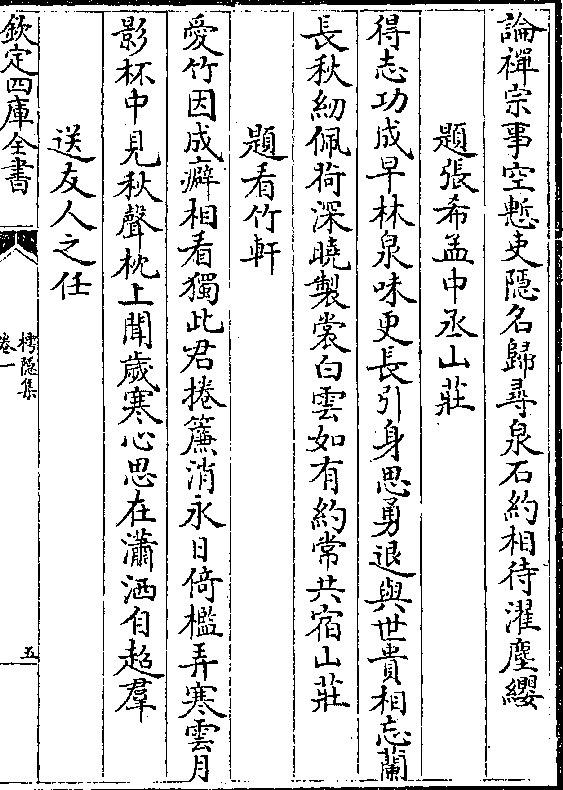 論禪宗事空慙吏隱名歸尋泉石約相待濯塵纓
題張希孟中丞山莊
得志功成早林泉味更長引身思勇退與世貴相忘蘭
長秋紉佩荷深曉製裳白雲如有約常共宿山莊
題看竹軒
愛竹因成癖相看獨此君捲簾消永日倚檻弄寒雲月
影杯中見秋聲枕上聞歲寒心思在瀟洒自超羣
送友人之任
欽定四庫全書
樗隱集
卷一
五